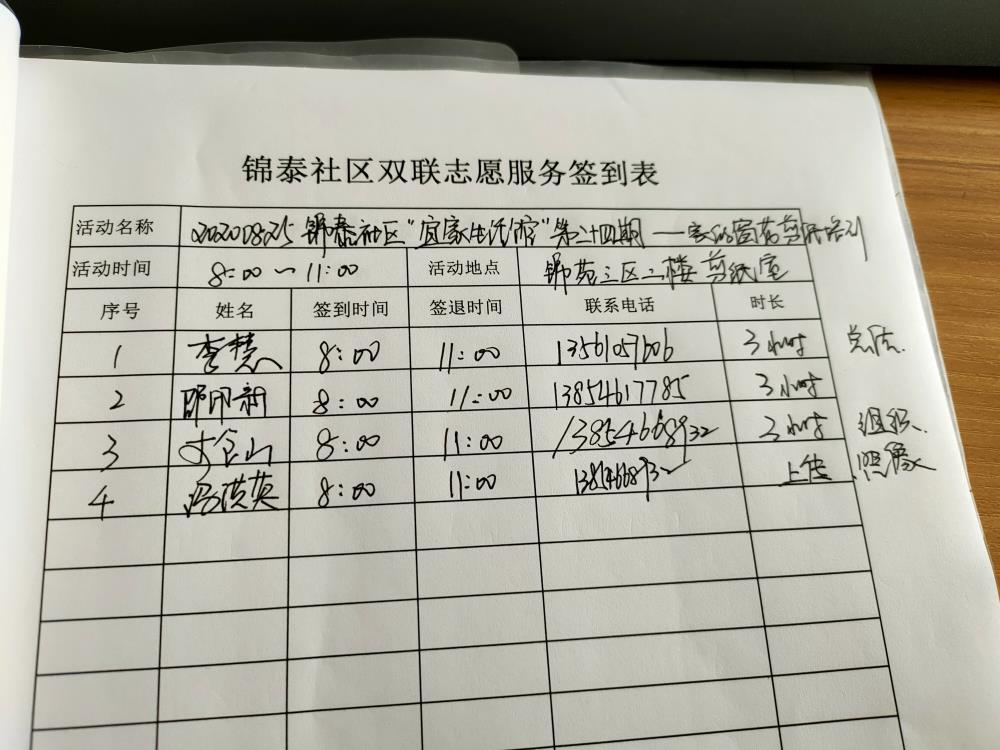 锦泰社区双联志愿服务签到表
活动名称 20200825 锦泰社区"宜家生活馆"第二十四期——窗花剪纸培训
活动时间 8:00—11:00 活动地点 锦苑三区二楼剪纸室
序号 姓名 签到时间 签退时间 联系电话 时长
1 李慧 8:00 11:00 13561057606 3小时
2 8:00 11:00 13854617785 3小时
3 8:00 11:00 13854668932 3小时 组织
4 冯洪英 8:00 11:00 上传 照像